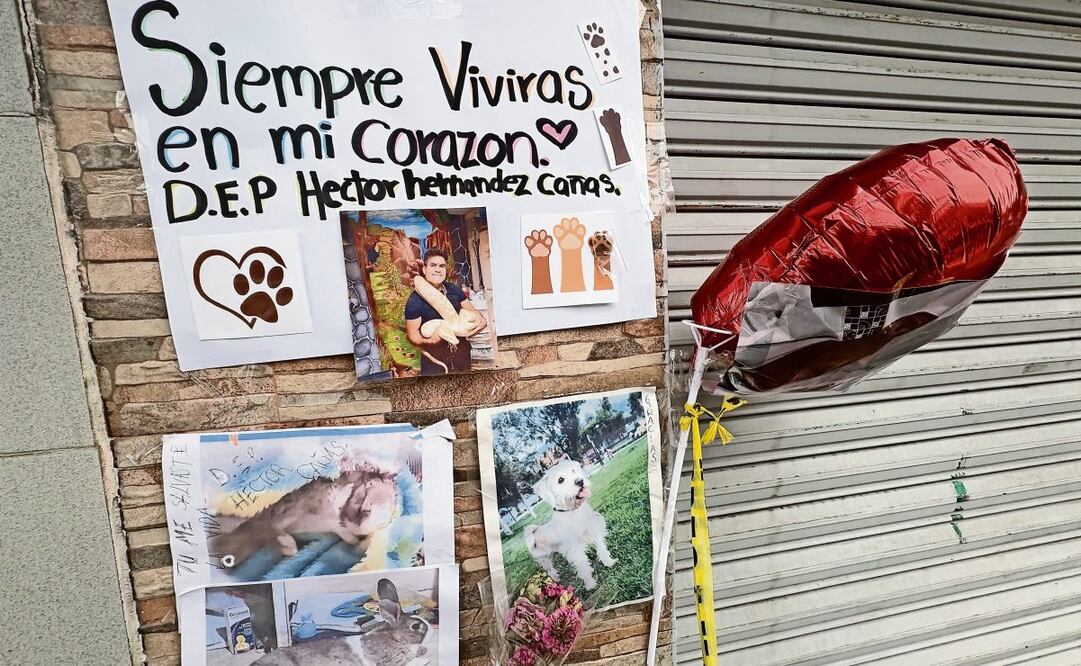 Siempre Viviras
en mi Corazon.
D.E.P Hector hernandez Cañas.
D.E.P
HECTOR CAÑAS.
TU ME SALVASTE
LA VIDA
GRACIAS